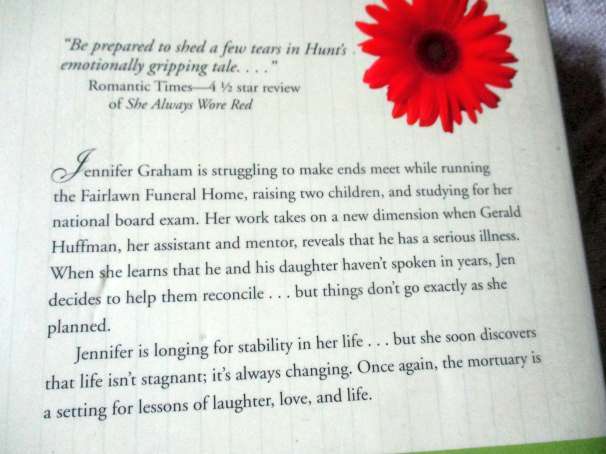 "Be prepared to shed a few tears in Hunt's
emotionally gripping tale. . . ."
Romantic Times—4 ½ star review
of She Always Wore Red
Jennifer Graham is struggling to make ends meet while running
the Fairlawn Funeral Home, raising two children, and studying for her
national board exam. Her work takes on a new dimension when Gerald
Huffman, her assistant and mentor, reveals that he has a serious illness.
When she learns that he and his daughter haven't spoken in years, Jen
decides to help them reconcile . . . but things don't go exactly as she
planned.
Jennifer is longing for stability in her life . . . but she soon discovers
that life isn't stagnant; it's always changing. Once again, the mortuary is
a setting for lessons of laughter, love, and life.